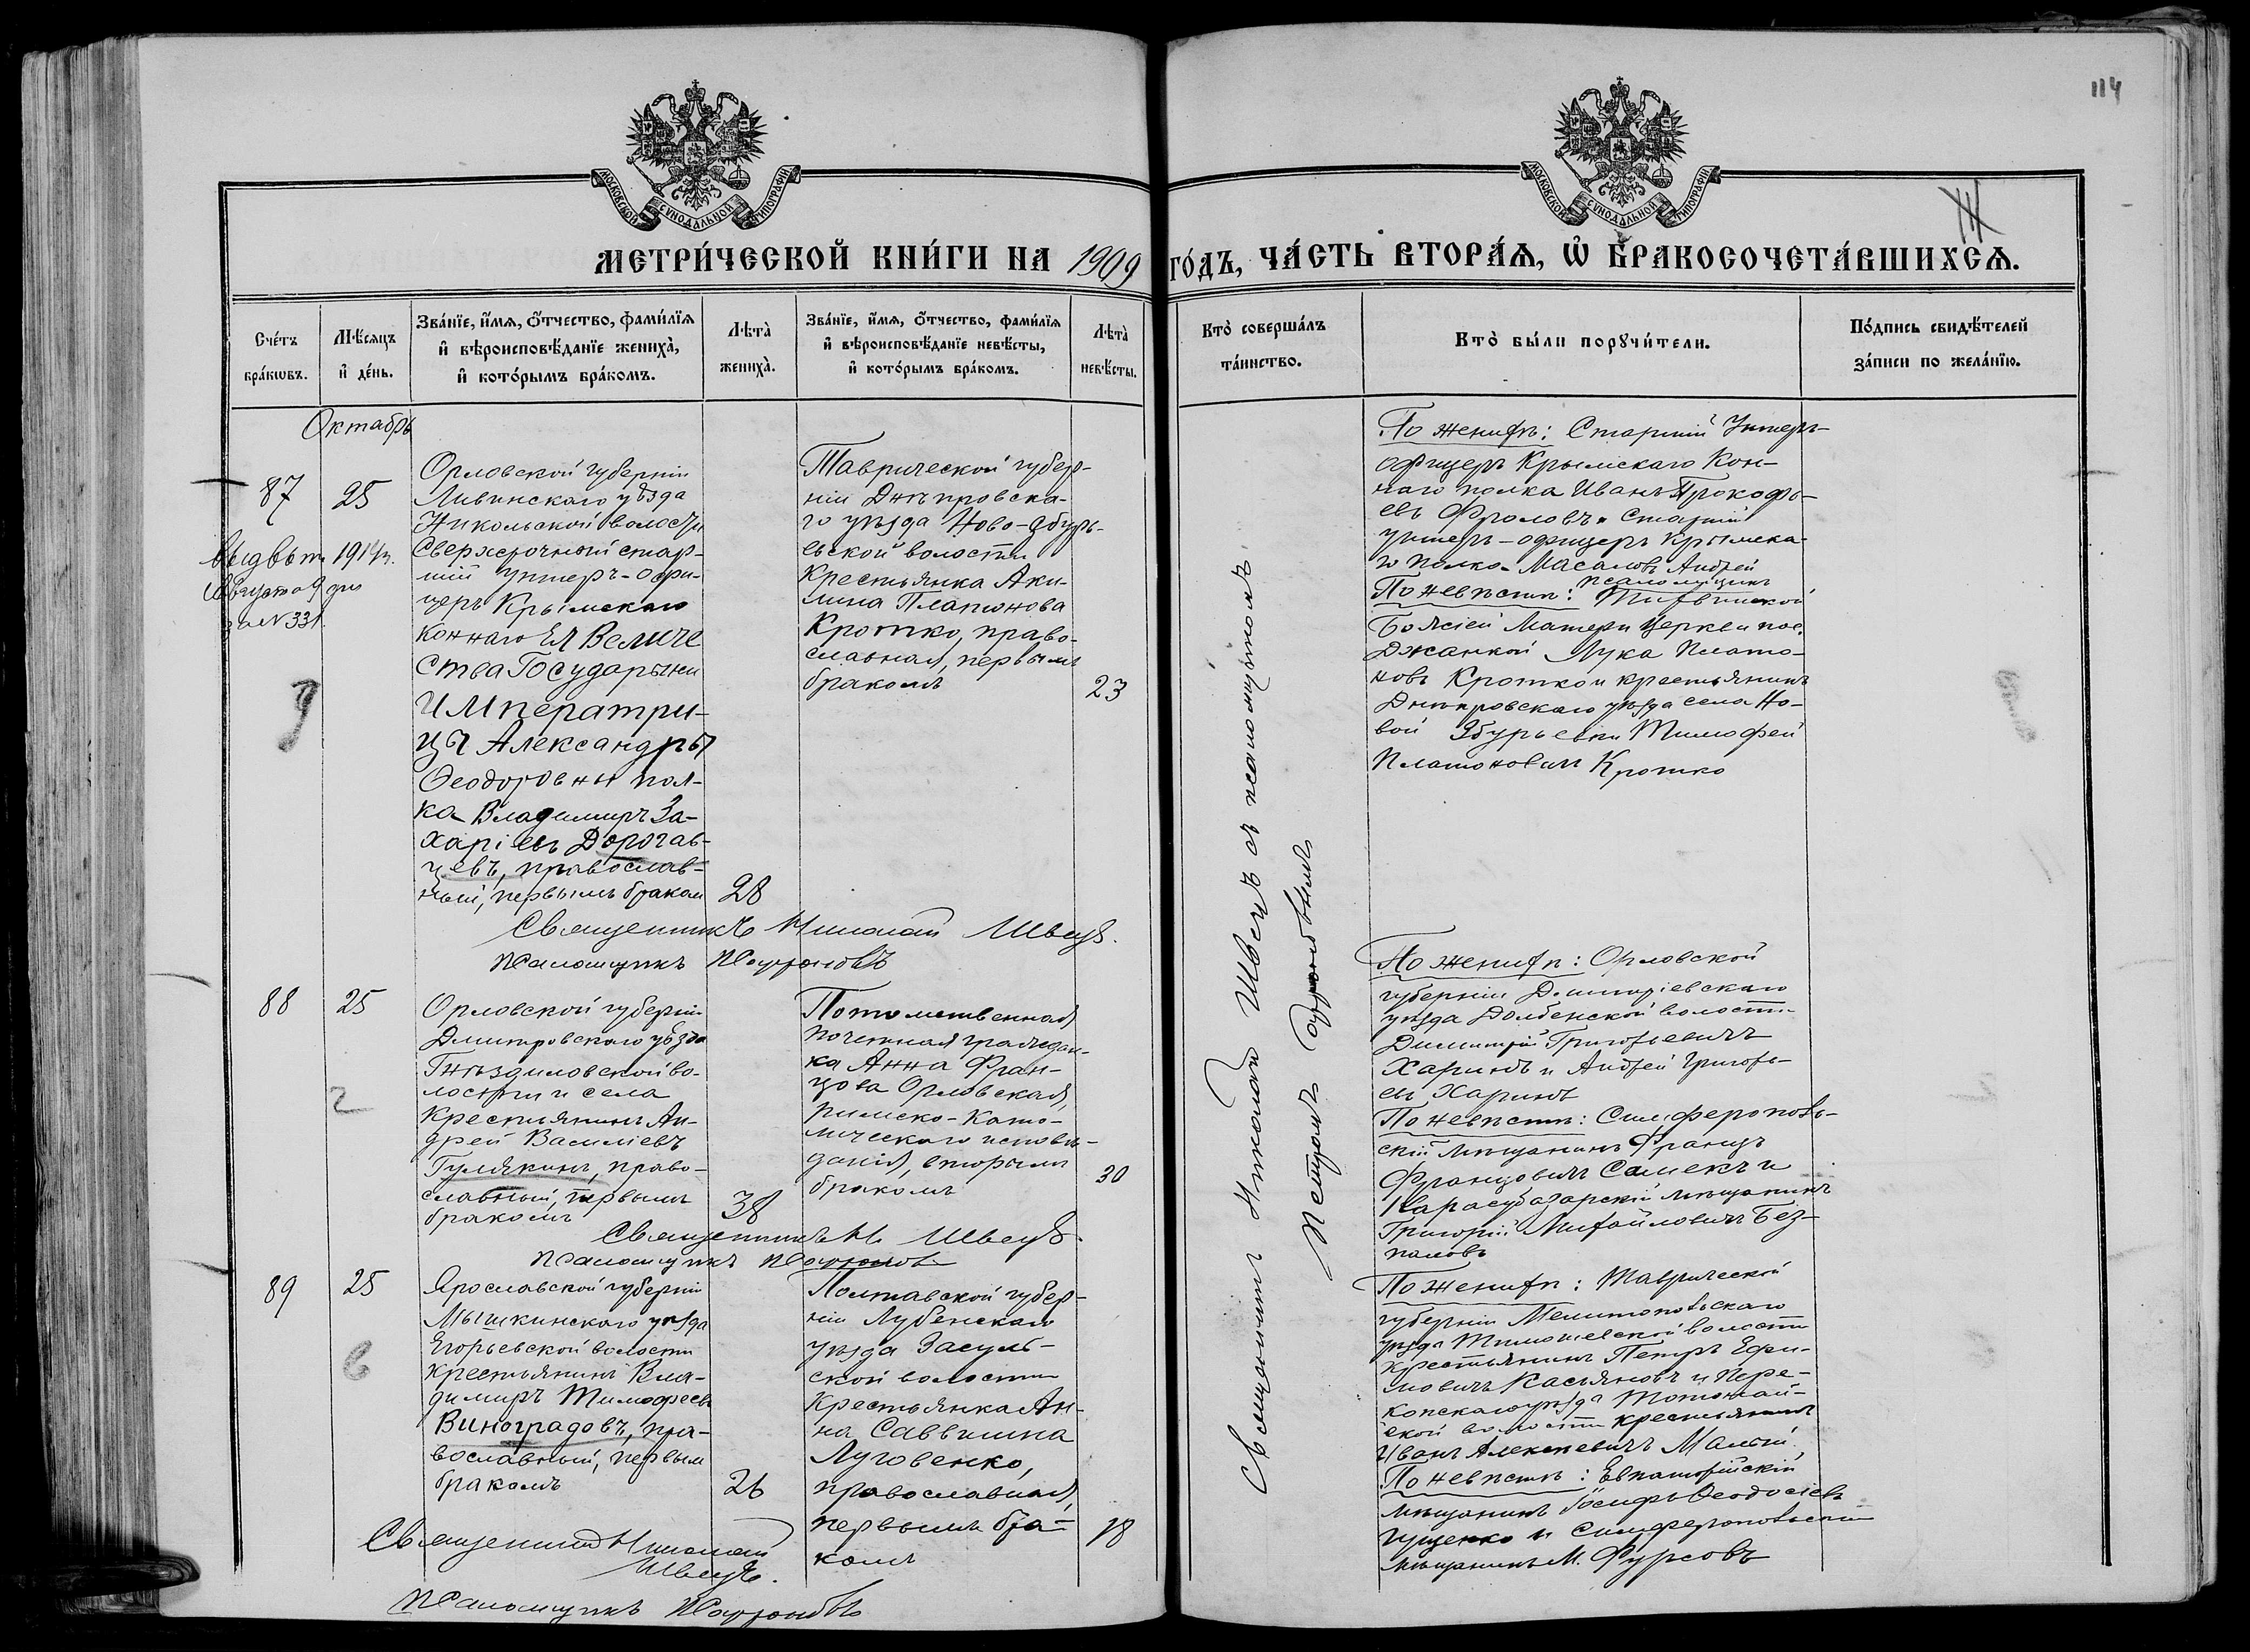 114
МОСКОВСКОЙ СѴНОДАЛЬНОЙ ТИПОГРАФІИ
МОСКОВСКОЙ СѴНОДАЛЬНОЙ ТИПОГРАФІИ
МЕТРИ́ЧЕСКОЙ КНИ́ГИ НА 1909 ГО́ДЪ, ЧА́СТЬ ВТОРА́Ѧ, Ѡ҆ БРАКОСОЧЕТА́ВШИХСѦ.
Сче́тъ
бра́кѡвъ.
Мѣ́сѧцъ
и҆ де́нь.
Зва́нїе, и҆́мѧ, ѻ҆́тчество, фамилїѧ
и҆ вѣроисповѣ́данїе жениха̀,
и҆ кото́рымъ бра́комъ.
Лѣта̀
жениха̀.
Зва́нїе, и҆́мѧ, ѻ҆́тчество, фамилїѧ
и҆ вѣроисповѣ́данїе невѣ́сты,
и҆ кото́рымъ бра́комъ.
Лѣта̀
невѣ́сты.
Кто̀ соверша́лъ
та́инство.
Кто̀ бы́ли порꙋчи́тели.
По́дпись свидѣ́телей
за́писи по жела́нїю.
Октябрь
87
25
Выдвѣт 1914 г.
Августа 9 дня
за № 331
Орловской губерніи
Ливинскаго уѣзда
Никольской волости
Сверхсрочный стар-
шій унтеръ-офи-
церъ Крымскаго
коннаго Ея Величе
ства Государыни
Императри-
цы Александры
Ѳеодоровны пол-
ка Владимиръ За-
харіевъ Дорогав-
цевъ, православ-
ный, первымъ бракомъ
28
Таврической губер-
ніи Днѣпровска-
го уѣзда Ново-Збурь-
евской волости
Крестьянка Аки-
лина Платонова
Кротко, право-
славная, первымъ
бракомъ
23
Священникъ Николай Швецъ.
Псаломщикъ
По женихѣ: Старшій Унтеръ-
офицеръ Крымскаго Кон-
наго полка Иванъ Прокофь-
евъ Фроловъ и Старшій
унтеръ-офицеръ Крымска-
го полка Масаловъ Андрей
По невѣстѣ: псаломщикъ Тихвинской
Божіей Матери Церкви пос.
Джанкой Лука Плато-
новъ Кротко и крестьянинъ
Днѣпровскаго уѣзда села Но-
вой Збурьевки Тимофей
Платоновичъ Кротко
Священникъ Николай Швецъ съ псаломщикомъ
Петромъ
88
25
Орловской губерніи
Дмитровскаго уѣзда
Гнѣздиловской во-
лости и села
Крестьянинъ Ан-
дрей Василіевъ
Гулякинъ, право-
славный, первымъ
бракомъ
38
Потомственная
почетная граждан-
ка Анна Фран-
цова Орловская,
Римско-Като-
лическаго исповѣ-
данія, вторымъ
бракомъ
30
Священникъ Н. Швецъ.
Псаломщикъ
По женихѣ: Орловской
губерніи Димитріевскаго
уѣзда Долбенской волости
Димитрій Григорьевичъ
Харинъ и Андрей Григорь-
евъ Харинъ
По невѣстѣ: Симферополь-
скій мѣщанинъ Францъ
Францовичъ Самекъ и
Карасубазарскій мѣщанинъ
Григорій Михайловичъ Без-
паловъ
89
25
Ярославской губерніи
Мышкинскаго уѣзда
Егорьевской волости
крестьянинъ Вла-
димиръ Тимофеевъ
Виноградовъ, пра-
вославный, первымъ
бракомъ
26
Полтавской губер-
ніи Лубенскаго
уѣзда Засуль-
ской волости
Крестьянка Ан-
на Саввишна
Луговенко,
православная,
первымъ бра-
комъ
18
Священникъ Николай
Швецъ.
Псаломщикъ
По женихѣ: Таврической
губерніи Мелитопольскаго
уѣзда Тимошевской волости
крестьянинъ Петръ Ефи-
мовичъ Касьяновъ и Пере-
копскаго уѣзда Тотонай-
ской волости крестьянинъ
Иванъ Алексѣевичъ Малый.
По невѣстѣ: Евпаторійскій
мѣщанинъ Іосифъ Ѳеодосіевъ
и Симферопольскій
мѣщанинъ М. Фурсовъ